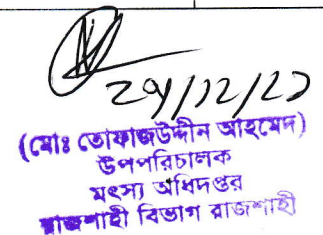 (মোঃ তোফাজউদ্দীন আহমেদ)
উপপরিচালক
মৎস্য অধিদপ্তর
রাজশাহী বিভাগ রাজশাহী